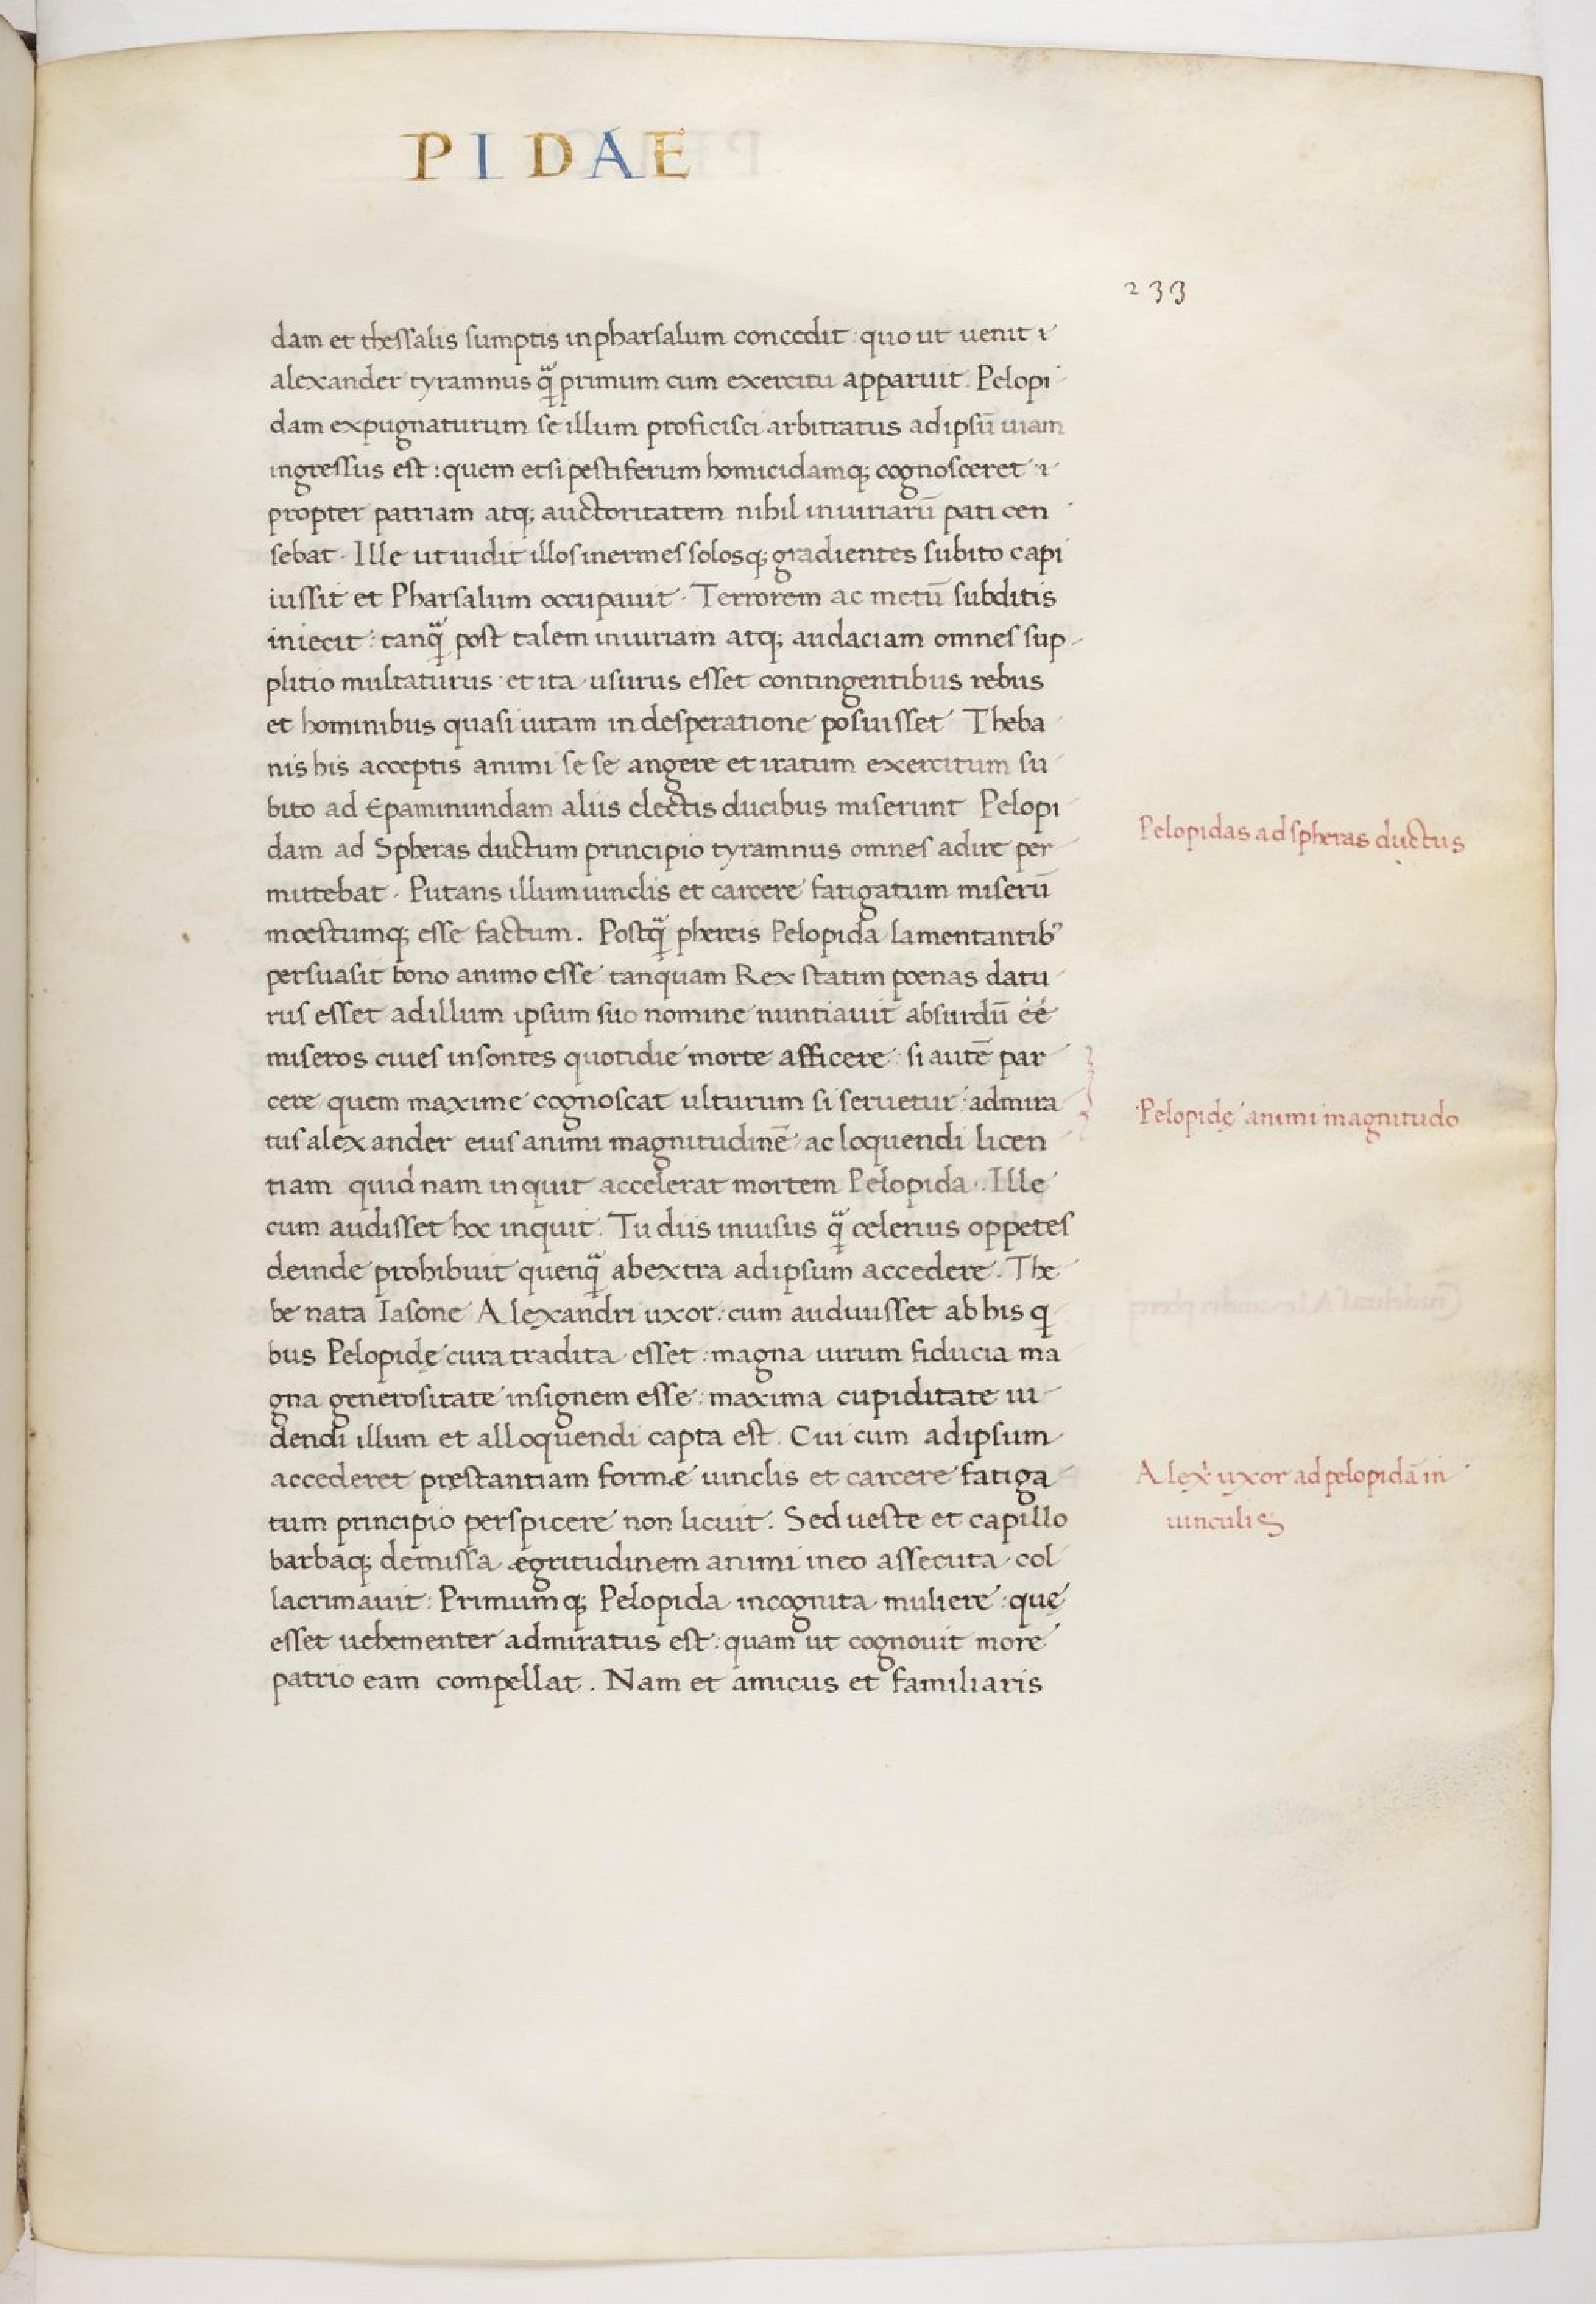 PIDAE
233
dam et thessalis sumptis in pharsalum concedit : quo ut uenit ⁊
alexander tyramnus q̄ primum cum exercitu apparuit. Pelopi
dam expugnaturum se illum proficisci arbitratus ad ipsū uiam
ingressus est : quem etsi pestiferum homicidamq; cognosceret : ⁊
propter patriam atq; auctoritatem nihil iniuriarū pati cen
sebat. Ille ut uidit illos inermes solosq; gradientes subito capi
iussit et Pharsalum occupauit. Terrorem ac metū subditis
iniecit : tanq̄ post talem iniuriam atq; audaciam omnes sup
plitio multaturus et ita usurus esset contingentibus rebus
et hominibus quasi uitam in desperatione posuisset Theba
nis his acceptis animi se se angere et iratum exercitum su
bito ad Epaminundam aliis electis ducibus miserunt Pelopi
dam ad Spheras ductum principio tyramnus omnes adire per
mittebat. Putans illum uinclis et carcere fatigatum miserū
moestumq; esse factum. Postq̄ phereis Pelopida lamentantib⁹
persuasit bono animo esse tanquam Rex statim poenas datu
rus esset ad illum ipsum suo nomine nuntiauit absurdū éé
miseros ciues insontes quotidie morte afficere : si autē par
cere quem maxime cognoscat ulturum si seruetur : admira
tus alexander eius animi magnitudinē ac loquendi licen
tiam quid nam inquit accelerat mortem Pelopida. Ille
cum audisset hoc inquit. Tu diis inuisus q̄ celerius oppetes
deinde prohibuit quenq̄ ab extra ad ipsum accedere. The
be nata Iasone Alexandri uxor : cum audiuisset ab his q
bus Pelopidę cura tradita esset : magna uirum fiducia ma
gna generositate insignem esse : maxima cupiditate ui
dendi illum et alloquendi capta est. Cui cum ad ipsum
accederet pręstantiam formæ uinclis et carcere fatiga
tum principio perspicere non licuit. Sed ueste et capillo
barbaq; demissa ægritudinem animi in eo assecuta col
lacrimauit : Primumq; Pelopida incognita muliere : quę
esset uehementer admiratus est : quam ut cognouit more
patrio eam compellat. Nam et amicus et familiaris
Pelopidas ad spheras ductus
Pelopidę animi magnitudo
Alex̓ uxor ad pelopidā in
uinculis